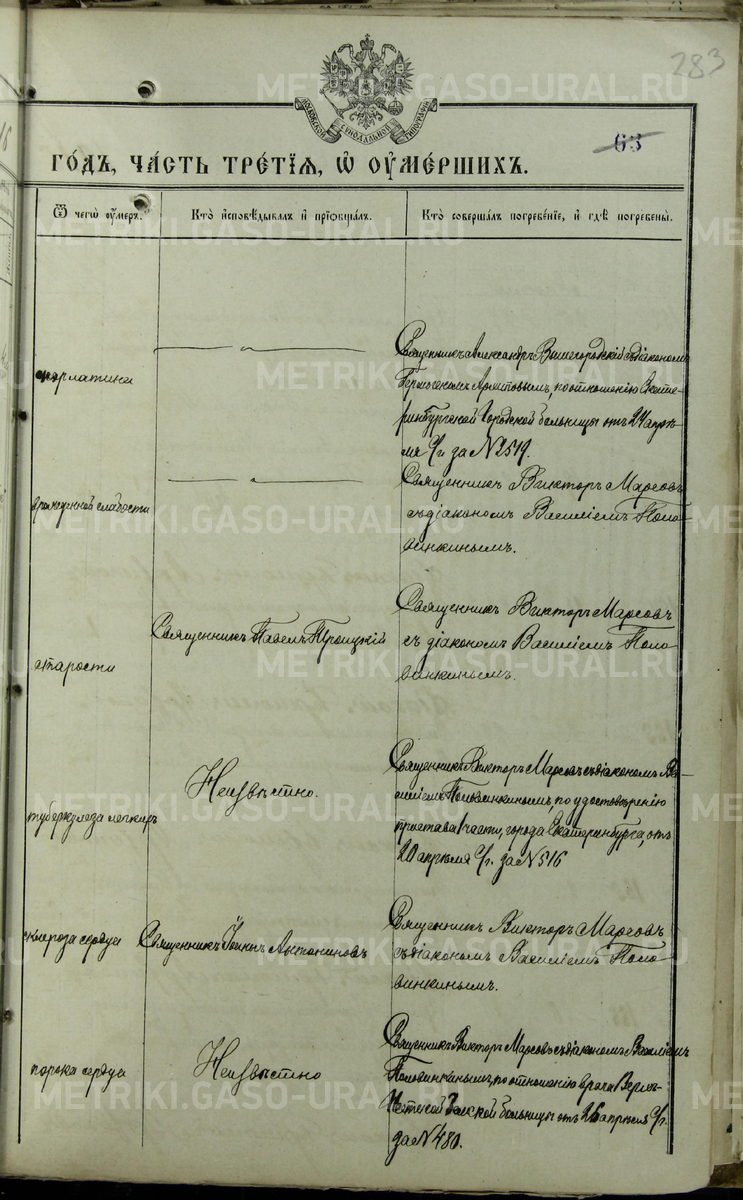 283
МОСКОВСКОЙ СѴНОДАЛЬНОЙ ТИПОГРАФІИ
63
ГОДЪ, ЧАСТЬ ТРЕТІЯ, Ѡ ОУМЕРШИХЪ.
Ѿ чегѡ оумеръ.
Кто исповѣдывалъ и пріѡбщалъ.
Кто совершалъ погребеніе, и гдѣ погребены.
скарлатины
Священникъ Александръ Вышегородскій съ діакономъ
по отношенію Екате-
ринбургской Городской больницы отъ 24 апрѣ-
ля с/г. за № 2519.
врожденной слабости
Священникъ Викторъ Марсовъ
съ діакономъ Василіемъ Поло-
винкинымъ.
старости
Священникъ Павелъ Троицкій
Священникъ Викторъ Марсовъ
съ діакономъ Василіемъ Поло-
винкинымъ.
туберкулеза легкихъ
Неизвѣстно.
Священникъ Викторъ Марсовъ съ діакономъ Ва-
силіемъ Половинкинымъ, по удостовѣренію
пристава 1 части, города Екатеринбурга, отъ
20 апрѣля с/г. за № 516
склероза сердца
Священникъ Іоаннъ Антониновъ
Священникъ Викторъ Марсовъ
съ діакономъ Василіемъ Поло-
винкинымъ.
порока сердца
Неизвѣстно
Священникъ Викторъ Марсовъ съ діакономъ Василіемъ
Половинкинымъ, по отношенію врача Верхъ-
Исетской больницы отъ 26 апрѣля с/г.
за № 480.
METRIKI.GASO-URAL.RU